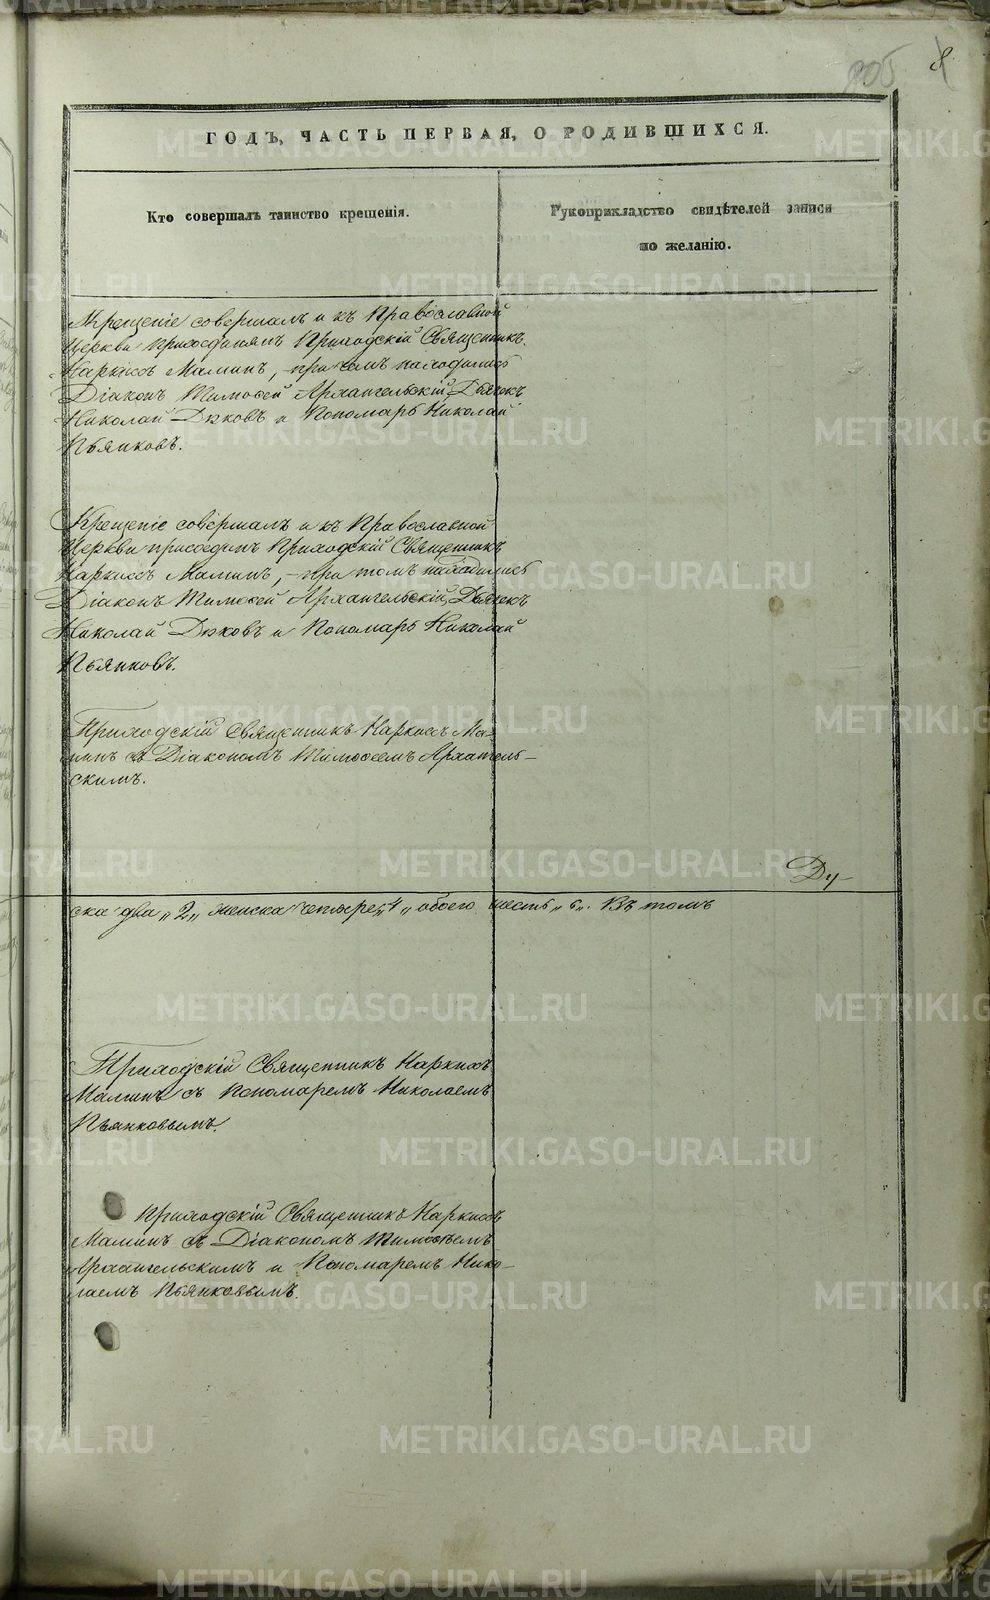 205
ГОДЪ, ЧАСТЬ ПЕРВАЯ, О РОДИВШИХСЯ.
Кто совершалъ таинство крещенія.
Рукоприкладство свидѣтелей записи
по желанію.
Крещеніе совершалъ и къ Православной
Церкви присоединялъ Приходскій Священникъ
Наркисъ Маминъ, при семъ находились
Діаконъ Тимоѳей Архангельскій, Дьячекъ
Николай Дюковъ и Пономарь Николай
Пьянковъ.
Крещеніе совершалъ и къ Православной
Церкви присоедин. Приходскій Священникъ
Наркисъ Маминъ, – при томъ находились
Діаконъ Тимоѳей Архангельскій, Дьячекъ
Николай Дюковъ и Пономарь Николай
Пьянковъ.
Приходскій Священникъ Наркисъ Ма-
минъ съ Діакономъ Тимоѳеемъ Архангель-
скимъ.
Ду-
ска два „2„ женска четыре „4„ обоего шесть „6„. Въ томъ
Приходскій Священникъ Наркисъ
Маминъ съ Пономаремъ Николаемъ
Пьянковымъ.
Приходскій Священникъ Наркисъ
Маминъ съ Діакономъ Тимоѳеемъ
Архангельскимъ и Пономаремъ Нико-
лаемъ Пьянковымъ.
METRIKI.GASO-URAL.RU